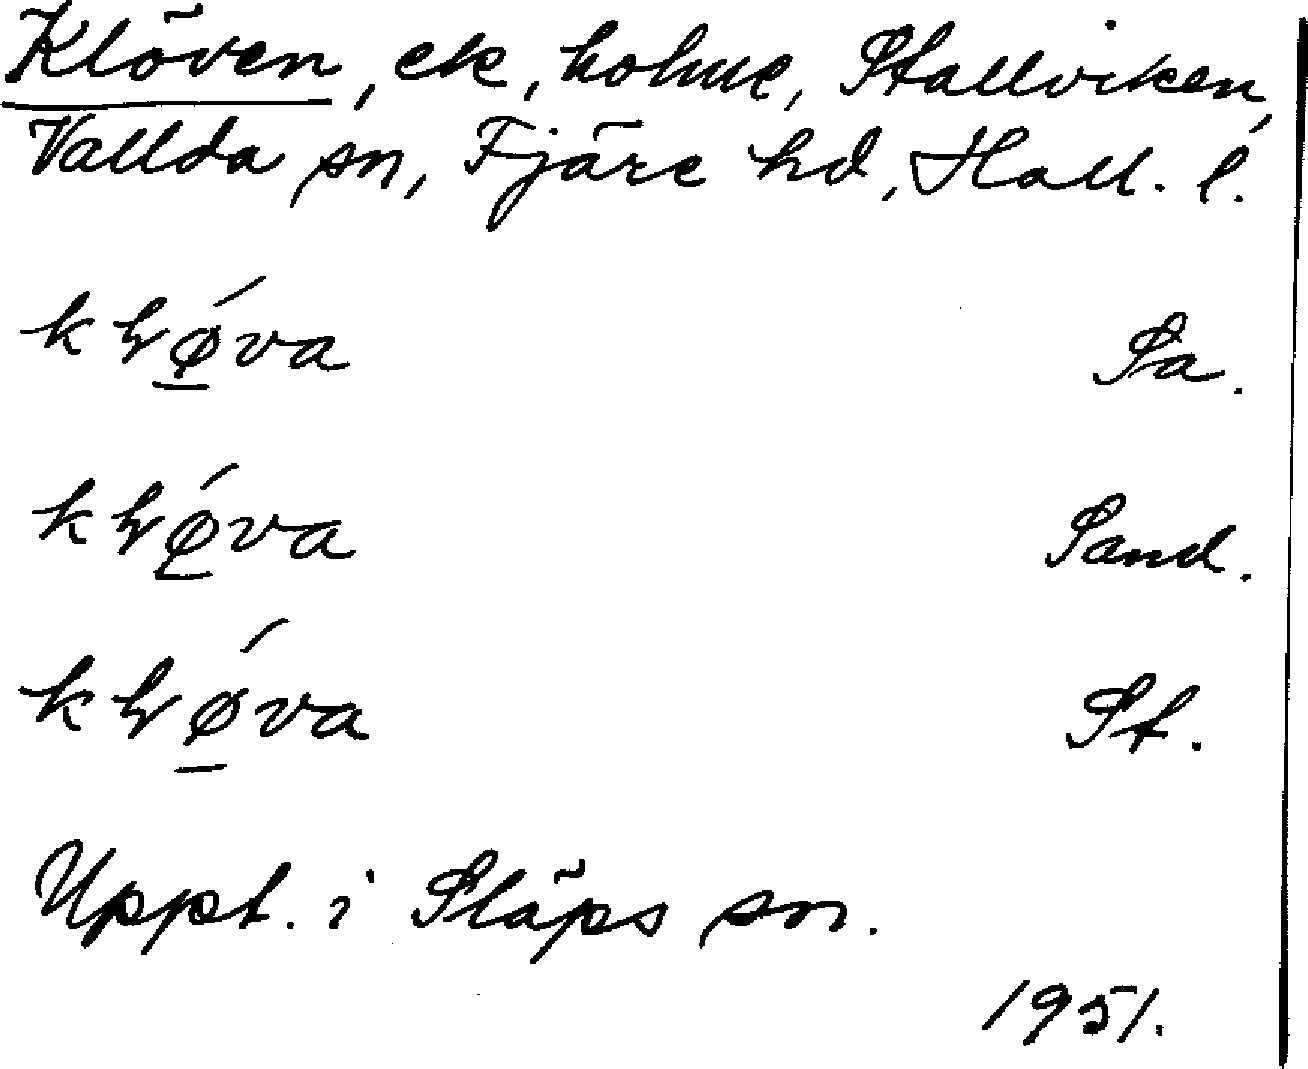 Klöven, ek, holme, Stallviken,
Vallda sn, Fjäre hd, Hall. l.
Sa.
Sand.
St.
Uppt. i Släps sn.
1951.